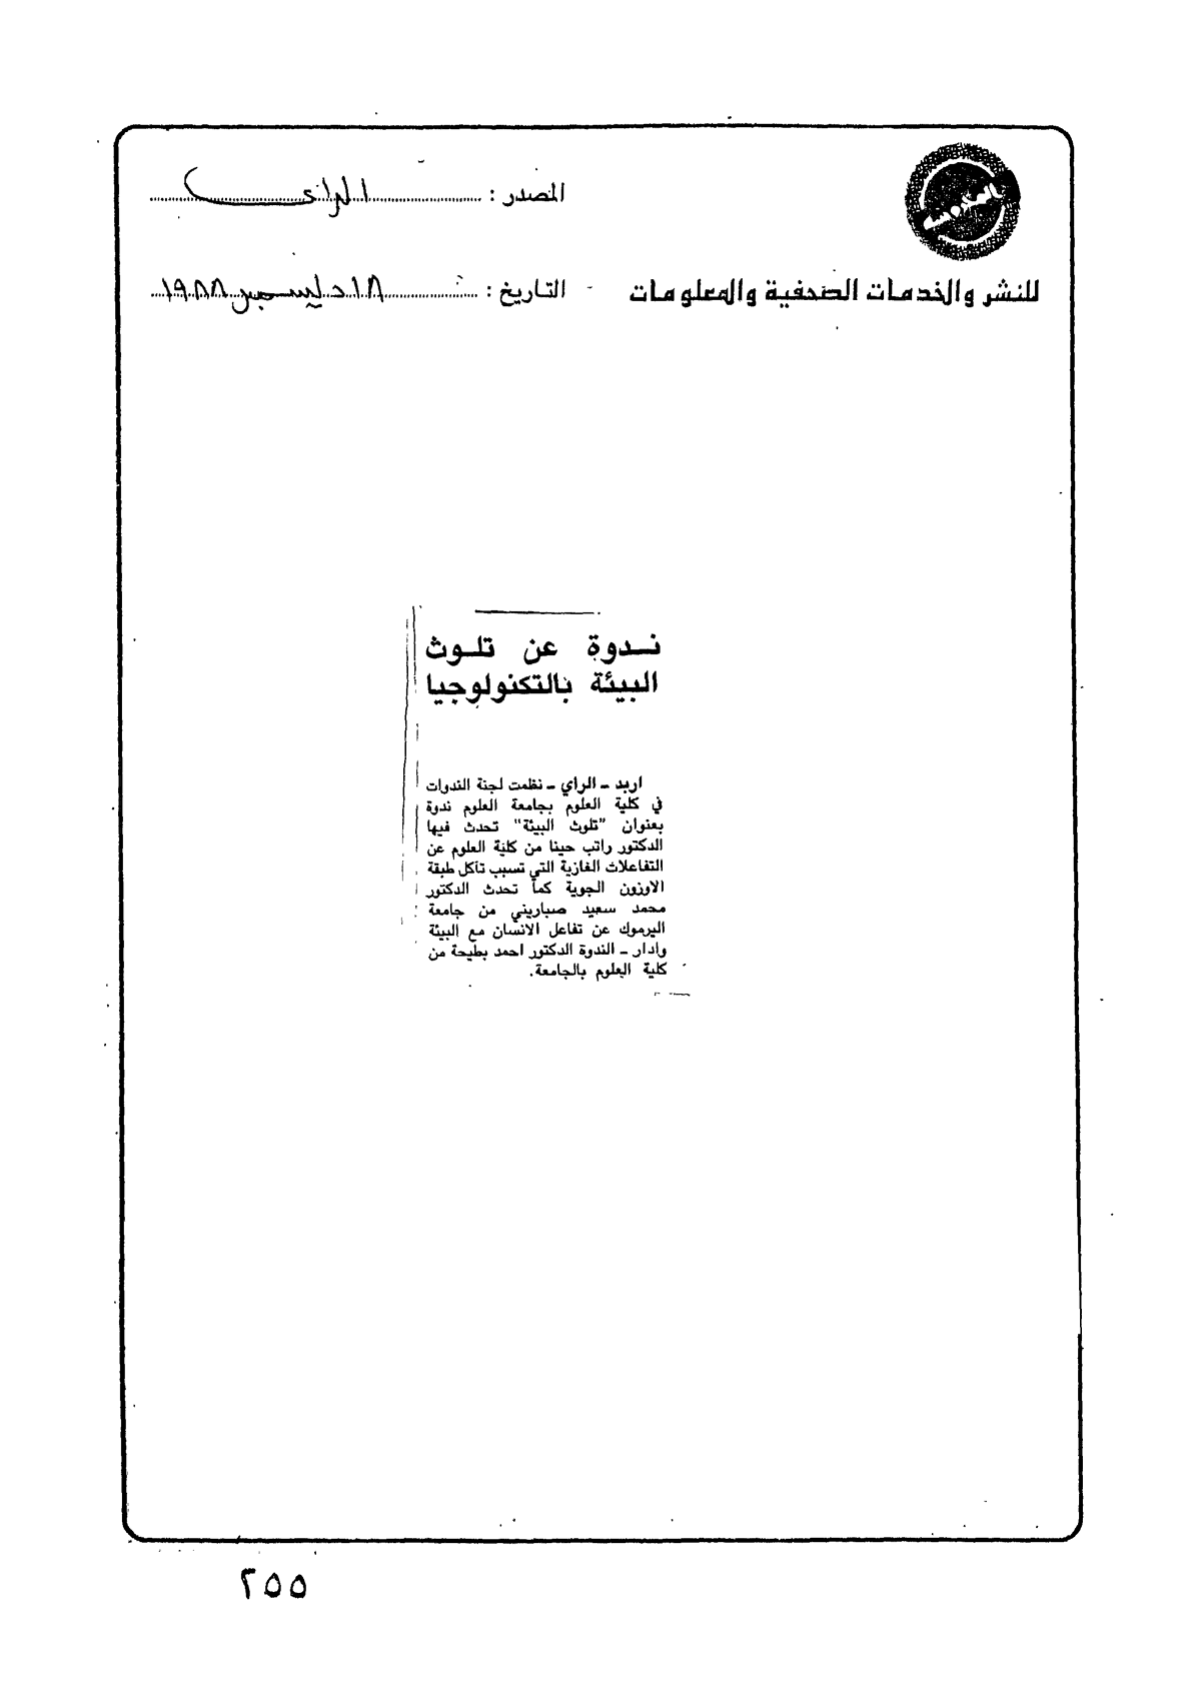 المصدر : الرأي
للنشر والخدمات الصحفية والمعلومات
التاريخ : ١٨ ديسمبر ١٩٨٨
ندوة عن تلوث
البيئة بالتكنولوجيا
اربد ـ الراي ـ نظمت لجنة الندوات
في كلية العلوم بجامعة العلوم ندوة
بعنوان "تلوث البيئة" تحدث فيها
الدكتور راتب حينا من كلية العلوم عن
التفاعلات الغازية التي تسبب تآكل طبقة
الاوزون الجوية كما تحدث الدكتور
محمد سعيد صباريني من جامعة
اليرموك عن تفاعل الانسان مع البيئة
وادار ـ الندوة الدكتور احمد بطيحة من
كلية العلوم بالجامعة.
٢٥٥